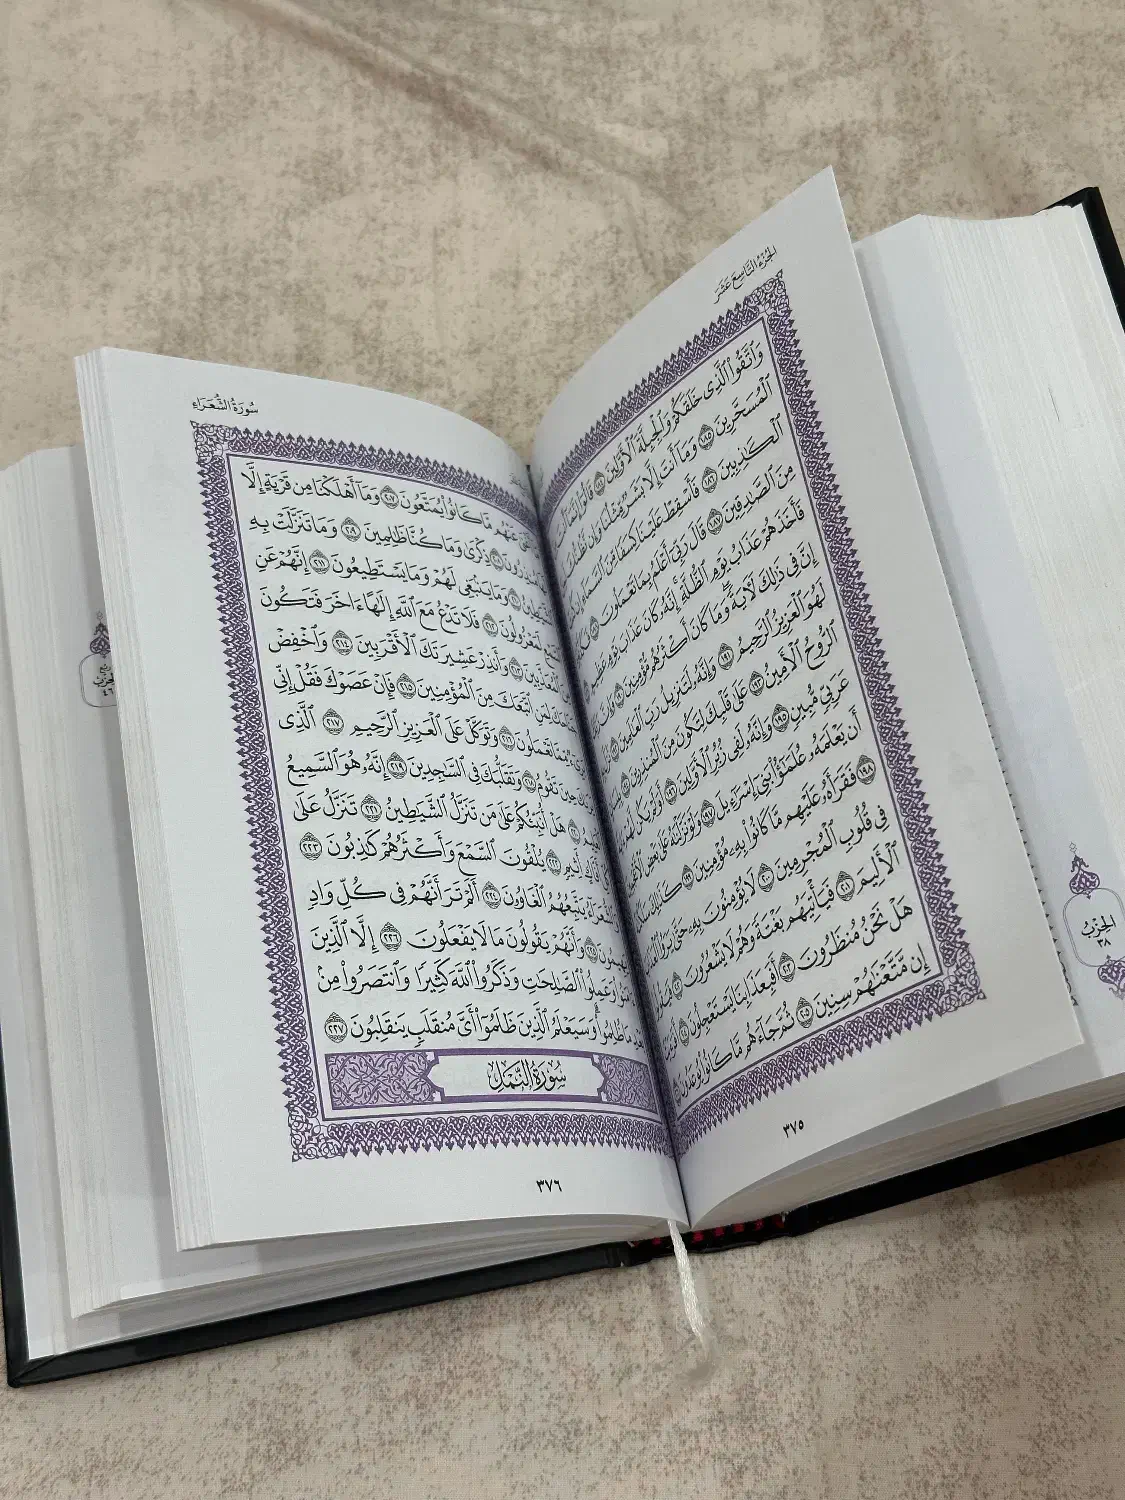 الجُزْءُ التَّاسِعَ عَشَرَ
وَٱتَّقُوا۟ ٱلَّذِى خَلَقَكُمْ وَٱلْجِبِلَّةَ ٱلْأَوَّلِينَ ١٨٤ قَالُوٓا۟ إِنَّمَآ
ٱلْمُسَحَّرِينَ ١٨٥ وَمَآ أَنتَ إِلَّا بَشَرٌ مِّثْلُنَا وَإِن نَّظُنُّكَ
ٱلْكَٰذِبِينَ ١٨٦ فَأَسْقِطْ عَلَيْنَا كِسَفًا مِّنَ ٱلسَّمَآءِ إِن
مِنَ ٱلصَّٰدِقِينَ ١٨٧ قَالَ رَبِّىٓ أَعْلَمُ بِمَا تَعْمَلُونَ ١٨٨
فَأَخَذَهُمْ عَذَابُ يَوْمِ ٱلظُّلَّةِ إِنَّهُۥ كَانَ عَذَابَ يَوْمٍ عَظِيمٍ
إِنَّ فِى ذَٰلِكَ لَءَايَةً وَمَا كَانَ أَكْثَرُهُم مُّؤْمِنِينَ ١٩٠ وَإِنَّ
لَهُوَ ٱلْعَزِيزُ ٱلرَّحِيمُ ١٩١ وَإِنَّهُۥ لَتَنزِيلُ رَبِّ ٱلْعَٰلَمِينَ
ٱلرُّوحُ ٱلْأَمِينُ ١٩٣ عَلَىٰ قَلْبِكَ لِتَكُونَ مِنَ ٱلْمُنذِرِينَ ١٩٤
عَرَبِىٍّ مُّبِينٍ ١٩٥ وَإِنَّهُۥ لَفِى زُبُرِ ٱلْأَوَّلِينَ ١٩٦ أَوَلَمْ يَكُن لَّهُمْ
أَن يَعْلَمَهُۥ عُلَمَٰٓؤُا۟ بَنِىٓ إِسْرَٰٓءِيلَ ١٩٧ وَلَوْ نَزَّلْنَٰهُ عَلَىٰ بَعْضِ
١٩٨ فَقَرَأَهُۥ عَلَيْهِم مَّا كَانُوا۟ بِهِۦ مُؤْمِنِينَ ١٩٩ كَذَٰلِكَ سَلَكْنَٰهُ
فِى قُلُوبِ ٱلْمُجْرِمِينَ ٢٠٠ لَا يُؤْمِنُونَ بِهِۦ حَتَّىٰ يَرَوُا۟ ٱلْعَذَابَ
ٱلْأَلِيمَ ٢٠١ فَيَأْتِيَهُم بَغْتَةً وَهُمْ لَا يَشْعُرُونَ ٢٠٢ فَيَقُولُوا۟
هَلْ نَحْنُ مُنظَرُونَ ٢٠٣ أَفَبِعَذَابِنَا يَسْتَعْجِلُونَ ٢٠٤ أَفَرَءَيْتَ
إِن مَّتَّعْنَٰهُمْ سِنِينَ ٢٠٥ ثُمَّ جَآءَهُم مَّا كَانُوا۟ يُوعَدُونَ
٣٧٥
الحِزْبُ
٣٨
سُورَةُ الشُّعَرَاءِ
عَنْهُم مَّا كَانُوا۟ يُمَتَّعُونَ ٢٠٧ وَمَآ أَهْلَكْنَا مِن قَرْيَةٍ إِلَّا
مُنذِرُونَ ٢٠٨ ذِكْرَىٰ وَمَا كُنَّا ظَٰلِمِينَ ٢٠٩ وَمَا تَنَزَّلَتْ بِهِ
ٱلشَّيَٰطِينُ ٢١٠ وَمَا يَنۢبَغِى لَهُمْ وَمَا يَسْتَطِيعُونَ ٢١١ إِنَّهُمْ عَنِ
ٱلسَّمْعِ لَمَعْزُولُونَ ٢١٢ فَلَا تَدْعُ مَعَ ٱللَّهِ إِلَٰهًا ءَاخَرَ فَتَكُونَ
ٱلْمُعَذَّبِينَ ٢١٣ وَأَنذِرْ عَشِيرَتَكَ ٱلْأَقْرَبِينَ ٢١٤ وَٱخْفِضْ
لِمَنِ ٱتَّبَعَكَ مِنَ ٱلْمُؤْمِنِينَ ٢١٥ فَإِنْ عَصَوْكَ فَقُلْ إِنِّى
بَرِىٓءٌ مِّمَّا تَعْمَلُونَ ٢١٦ وَتَوَكَّلْ عَلَى ٱلْعَزِيزِ ٱلرَّحِيمِ ٢١٧ ٱلَّذِى
يَرَىٰكَ حِينَ تَقُومُ ٢١٨ وَتَقَلُّبَكَ فِى ٱلسَّٰجِدِينَ ٢١٩ إِنَّهُۥ هُوَ ٱلسَّمِيعُ
ٱلْعَلِيمُ ٢٢٠ هَلْ أُنَبِّئُكُمْ عَلَىٰ مَن تَنَزَّلُ ٱلشَّيَٰطِينُ ٢٢١ تَنَزَّلُ عَلَىٰ
كُلِّ أَفَّاكٍ أَثِيمٍ ٢٢٢ يُلْقُونَ ٱلسَّمْعَ وَأَكْثَرُهُمْ كَٰذِبُونَ ٢٢٣
وَٱلشُّعَرَآءُ يَتَّبِعُهُمُ ٱلْغَاوُۥنَ ٢٢٤ أَلَمْ تَرَ أَنَّهُمْ فِى كُلِّ وَادٍ
يَهِيمُونَ ٢٢٥ وَأَنَّهُمْ يَقُولُونَ مَا لَا يَفْعَلُونَ ٢٢٦ إِلَّا ٱلَّذِينَ
ءَامَنُوا۟ وَعَمِلُوا۟ ٱلصَّٰلِحَٰتِ وَذَكَرُوا۟ ٱللَّهَ كَثِيرًا وَٱنتَصَرُوا۟ مِنۢ
بَعْدِ مَا ظُلِمُوا۟ وَسَيَعْلَمُ ٱلَّذِينَ ظَلَمُوٓا۟ أَىَّ مُنقَلَبٍ يَنقَلِبُونَ ٢٢٧
سُورَةُ النَّمْلِ
٣٧٦